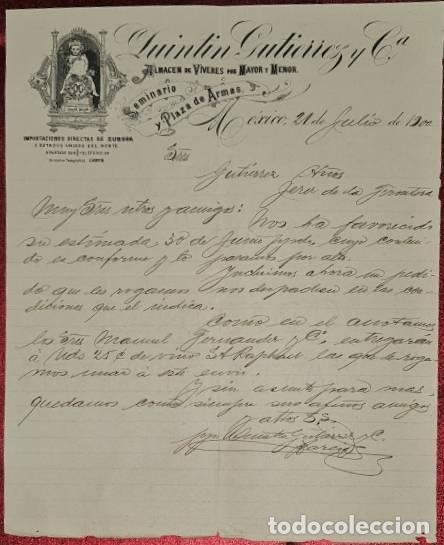 Quintin Gutierrez y Cª
ALMACEN DE VÍVERES POR MAYOR Y MENOR.
Seminario
y Plaza de Armas.
IMPORTACIONES DIRECTAS DE EUROPA
Y ESTADOS UNIDOS DEL NORTE.
México, 21 de Julio de 1900
Sres
Gutiérrez Hños
Jerez de la Frontera
Muy Sres ntros y amigos:
Nos ha favorecido
su estimada, 30 de Junio ppdo, cuyo conteni-
do es conforme y lo pasamos por alto.
Incluimos ahora un pedi-
do que les rogamos nos despachen en las con-
diciones que él indica.
Como en él anotamos
los Sres Manuel Fernandez y C. entregarán
á Uds 25 c de vino St Raphael las que le roga-
mos unan á este envío.
Y sin asunto para mas
quedamos como siempre sus afmos amigos
y attos S.S.
Quintin Gutierrez y C.
todocoleccion.net